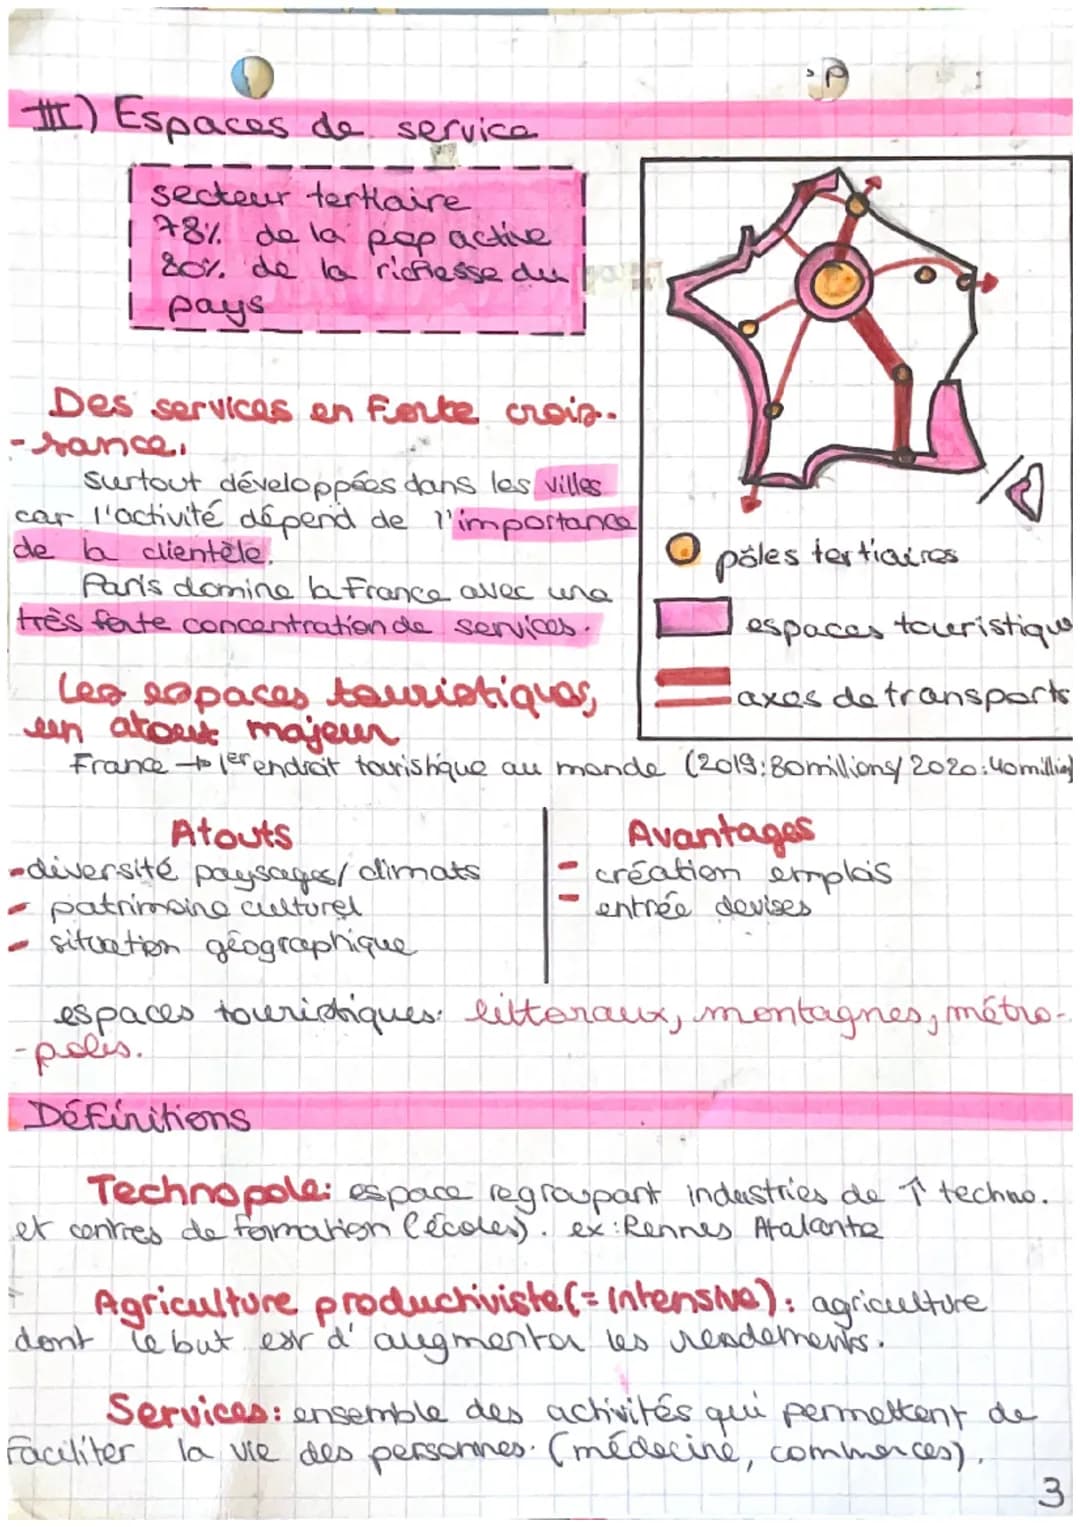 III) Espaces de service
secteur tertiaire
78% de la pop active
80% de la richesse du
pays
Des services en forte crois-
-sance.
Surtout développées dans les villes
car l'activité dépend de l'importance
de la clientèle.
Paris domine la France avec une
très forte concentration de services.
pôles tertiaires
espaces touristique
axes de transports
Les espaces touristiques,
un atout majeur
France → 1er endroit touristique au monde (2019: 80 millions/ 2020: 40 million
Atouts
- diversité paysages/climats
- patrimoine culturel
- situation géographique
Avantages
- création emplois
- entrée devises
espaces touristiques: littoraux, montagnes, métro-
-poles.
Définitions
Technopole: espace regroupant industries de ↑ techno.
et centres de formation (écoles). ex: Rennes Atalante
Agriculture productiviste (= intensive): agriculture
dont le but est d'augmenter les rendements.
Services: ensemble des activités qui permettent de
faciliter la vie des personnes. (médecine, commerces).
3